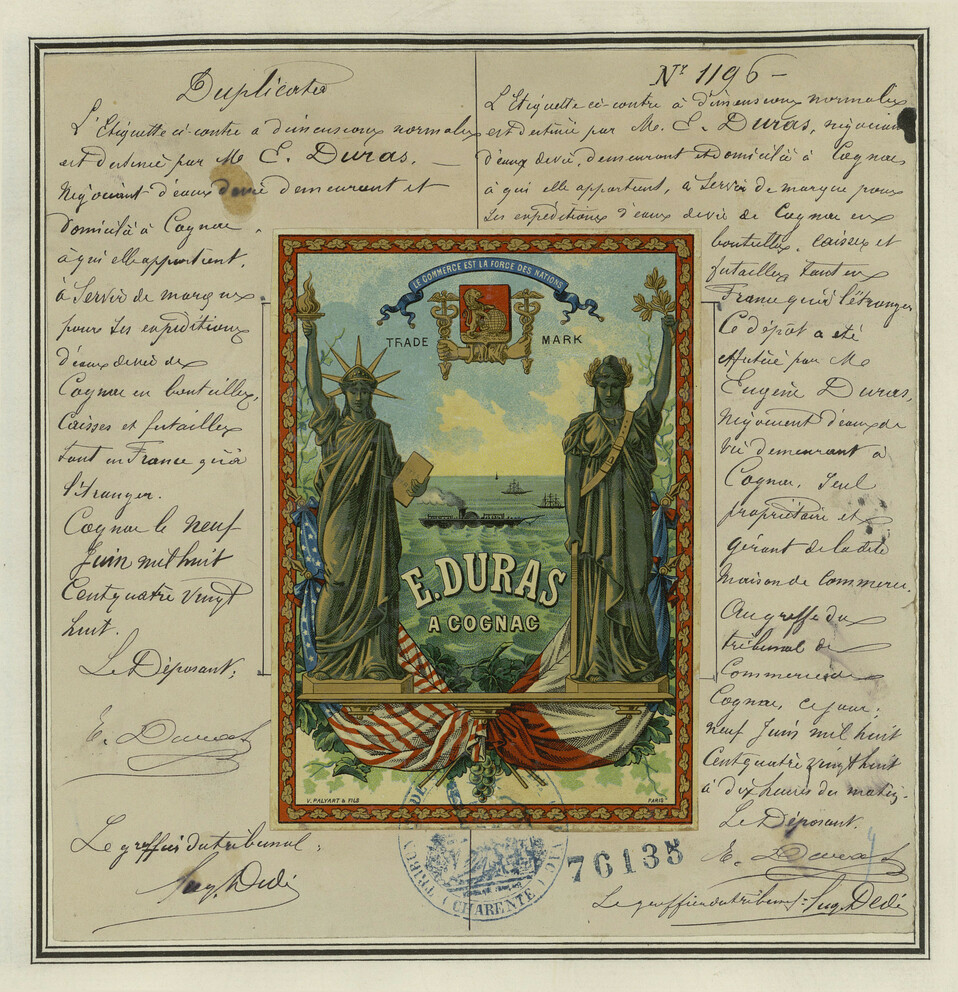 Duplicata
L'Etiquette ci-contre a dimensions normales
est destinée par Mr E. Duras,
Négociant d'eaux de vie demeurant et
Domicilié à Cognac
à qui elle appartient,
à Servir de marque
pour ses expéditions
d'eaux de vie de
Cognac en bouteilles,
Caisses et futailles
tant en France qu'à
l'Etranger.
Cognac le neuf
Juin mil huit
Cent quatre vingt
huit.
Le Déposant,
E. Duras
Le greffier du tribunal:
Eug. Dédé
LE COMMERCE EST LA FORCE DES NATIONS
TRADE MARK
E. DURAS
A COGNAC
V. PALYART & FILS
PARIS
CHARENTE
76135
Nr 1196 -
L'Etiquette ci-contre à dimensions normales
est destinée par Mr. E. Duras, négociant
d'eaux de vie, demeurant et domicilié à Cognac
à qui elle appartient, a Servir de marque pour
ses expéditions d'eaux de vie de Cognac en
bouteilles, Caisses et
futailles tant en
France qu'à l'étranger
Ce dépôt a été
effectué par Mr
Eugène Duras,
Négociant d'eaux de
vie demeurant à
Cognac, Seul
propriétaire et
gérant de la dite
Maison de Commerce.
Au greffe du
tribunal de
Commerce de
Cognac, ce jour,
neuf Juin mil huit
Cent quatre vingt huit
à dix heures du matin.
Le Déposant.
E. Duras
Le greffier du tribunal: Eug. Dédé